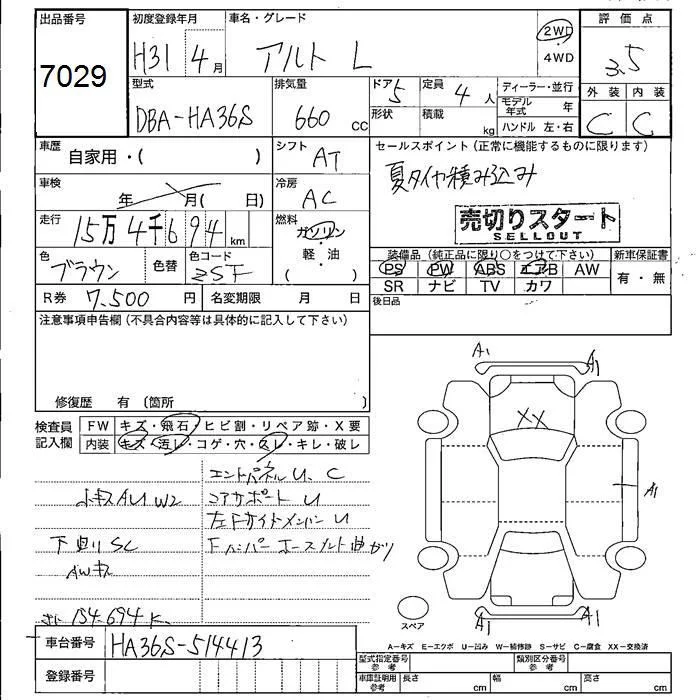 出品番号 初度登録年月 車名・グレード 評価点
7029 H31 4月 アルト L 2WD・4WD 3.5
型式 排気量 ドア 定員 ディーラー・並行 外装 内装
DBA-HA36S 660 cc 5 4人 モデル年式 年 C C
形状 積載 kg ハンドル 左・右
車歴 自家用・( ) シフト AT セールスポイント(正常に機能するものに限ります)
車検 年 月( 日) 冷房 AC 夏タイヤ積み込み
走行 15万4千694km 燃料 ガソリン・軽・油 ( )
売切りスタート
SELLOUT
色 ブラウン 色替 色コード ZSF
装備品(純正品に限り○をつけて下さい) 新車保証書
PS PW ABS エアB AW 有・無
SR ナビ TV カワ
R券 7,500円 名変期限 月 日 後日品
注意事項申告欄(不具合内容等は具体的に記入して下さい)
修復歴 有(箇所
検査員記入欄 FW キズ・飛石・ヒビ割・リペア跡・X要
内装 キズ・汚レ・コゲ・穴・スレ・キレ・破レ
エンドパネルU、C
小キズAU W2 コアサポートU
左Fサイドメンバー U
下廻りSC Fバンパーホースメント曲がり
AWキズ
154,694K
A1 A1
XX
A1
A1 A1
スペア
車台番号 HA36S-514413
A=キズ E=エクボ U=凹み W=補修跡 S=サビ C=腐食 XX=交換済
登録番号
型式指定番号参考 類別区分番号参考
車庫証明用参考 長さ cm 幅 cm 高さ cm